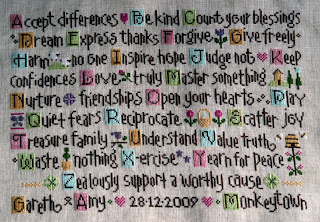 Accept differences Be kind Count your blessings
Dream Express thanks Forgive Give freely
Harm no one Inspire hope Judge not Keep
confidences Love truly Master something
Nurture friendships Open your hearts Play
Quiet fears Reciprocate Scatter joy
Treasure family Understand Value truth
Waste nothing Xercise Yearn for peace
Zealously support a worthy cause
Gareth & Amy 28·12·2009 Monkeytown